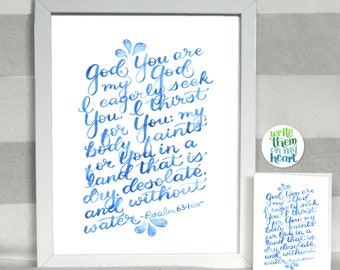 God, You are
my God
I eagerly seek
You. I thirst
for You; my
body faints
for You in a
land that is
dry, desolate,
and without
water. ~Psalm 63:1
write
them
on my
heart
God, You are
my God
I eagerly seek
You. I thirst
for You; my
body faints
for You in a
land that is
dry, desolate,
and without
water. ~Psalm 63:1